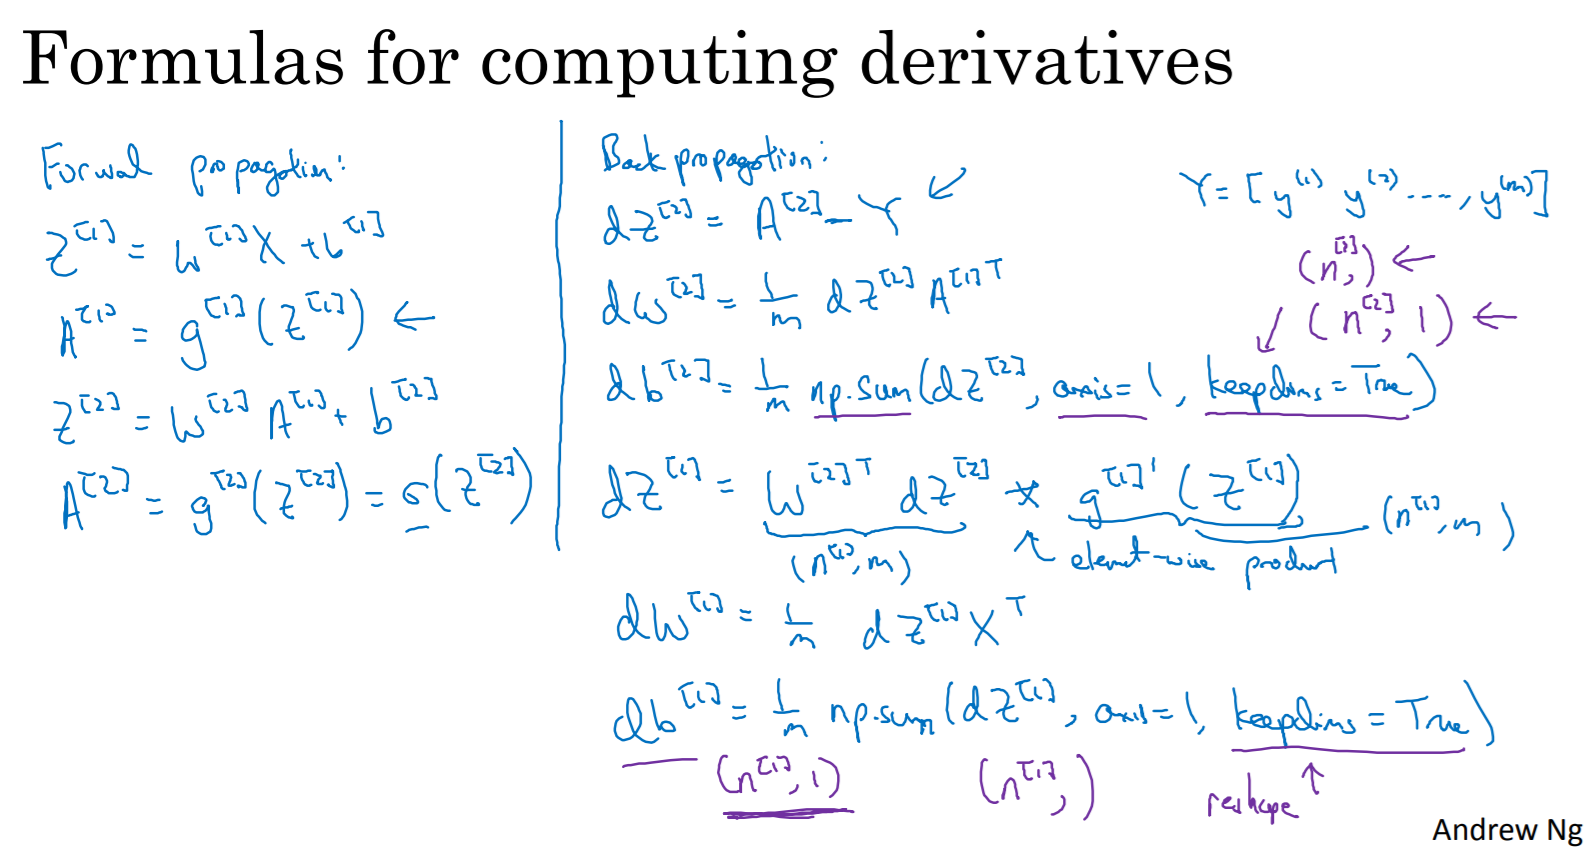 Formulas for computing derivatives
Forwal propagation:
Z^[1] = W^[1] X + b^[1]
A^[1] = g^[1](Z^[1]) ←
Z^[2] = W^[2] A^[1] + b^[2]
A^[2] = g^[2](Z^[2]) = σ(Z^[2])
Back propagation:
dZ^[2] = A^[2] - Y ↙
Y = [y^(1) y^(2) ...., y^(m)]
dW^[2] = 1/m dZ^[2] A^[1]T
(n^[2],) ←
↙ (n^[2], 1) ←
db^[2] = 1/m np.sum(dZ^[2], axis=1, keepdims=True)
dZ^[1] = W^[2]T dZ^[2] * g^[1]'(Z^[1])
(n^[1], m) ↖ element-wise product (n^[1], m)
dW^[1] = 1/m dZ^[1] X^T
db^[1] = 1/m np.sum(dZ^[1], axis=1, keepdims=True)
(n^[1], 1) (n^[1],) reshape ↑
Andrew Ng